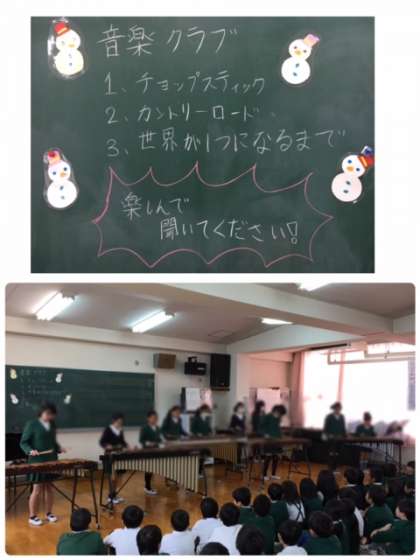 音楽 クラブ
1、チョップスティック
2、カントリーロード
3、世界が1つになるまで
楽しんで
聞いてください!